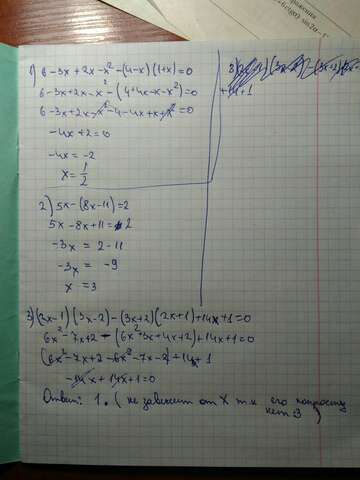 1) 6-3x+2x-x²-(4-x)(1+x)=0
6-3x+2x-x²-(4+4x-x-x²)=0
6-3x+2x-x²-4-4x+x+x²=0
-4x+2=0
-4x=-2
x=1/2
2) 5x-(8x-11)=2
5x-8x+11=2
-3x = 2-11
-3x = -9
x = 3
3)(2x-1)(3x-2)-(3x+2)(2x+1)+14x+1=0
6x²-7x+2-(6x²+3x+4x+2)+14x+1=0
(6x²-7x+2-6x²-7x-2)+14x+1
-14x+14x+1=0
Ответ: 1. (не зависит от X т.к его попросту
нет :3)
3)
+1